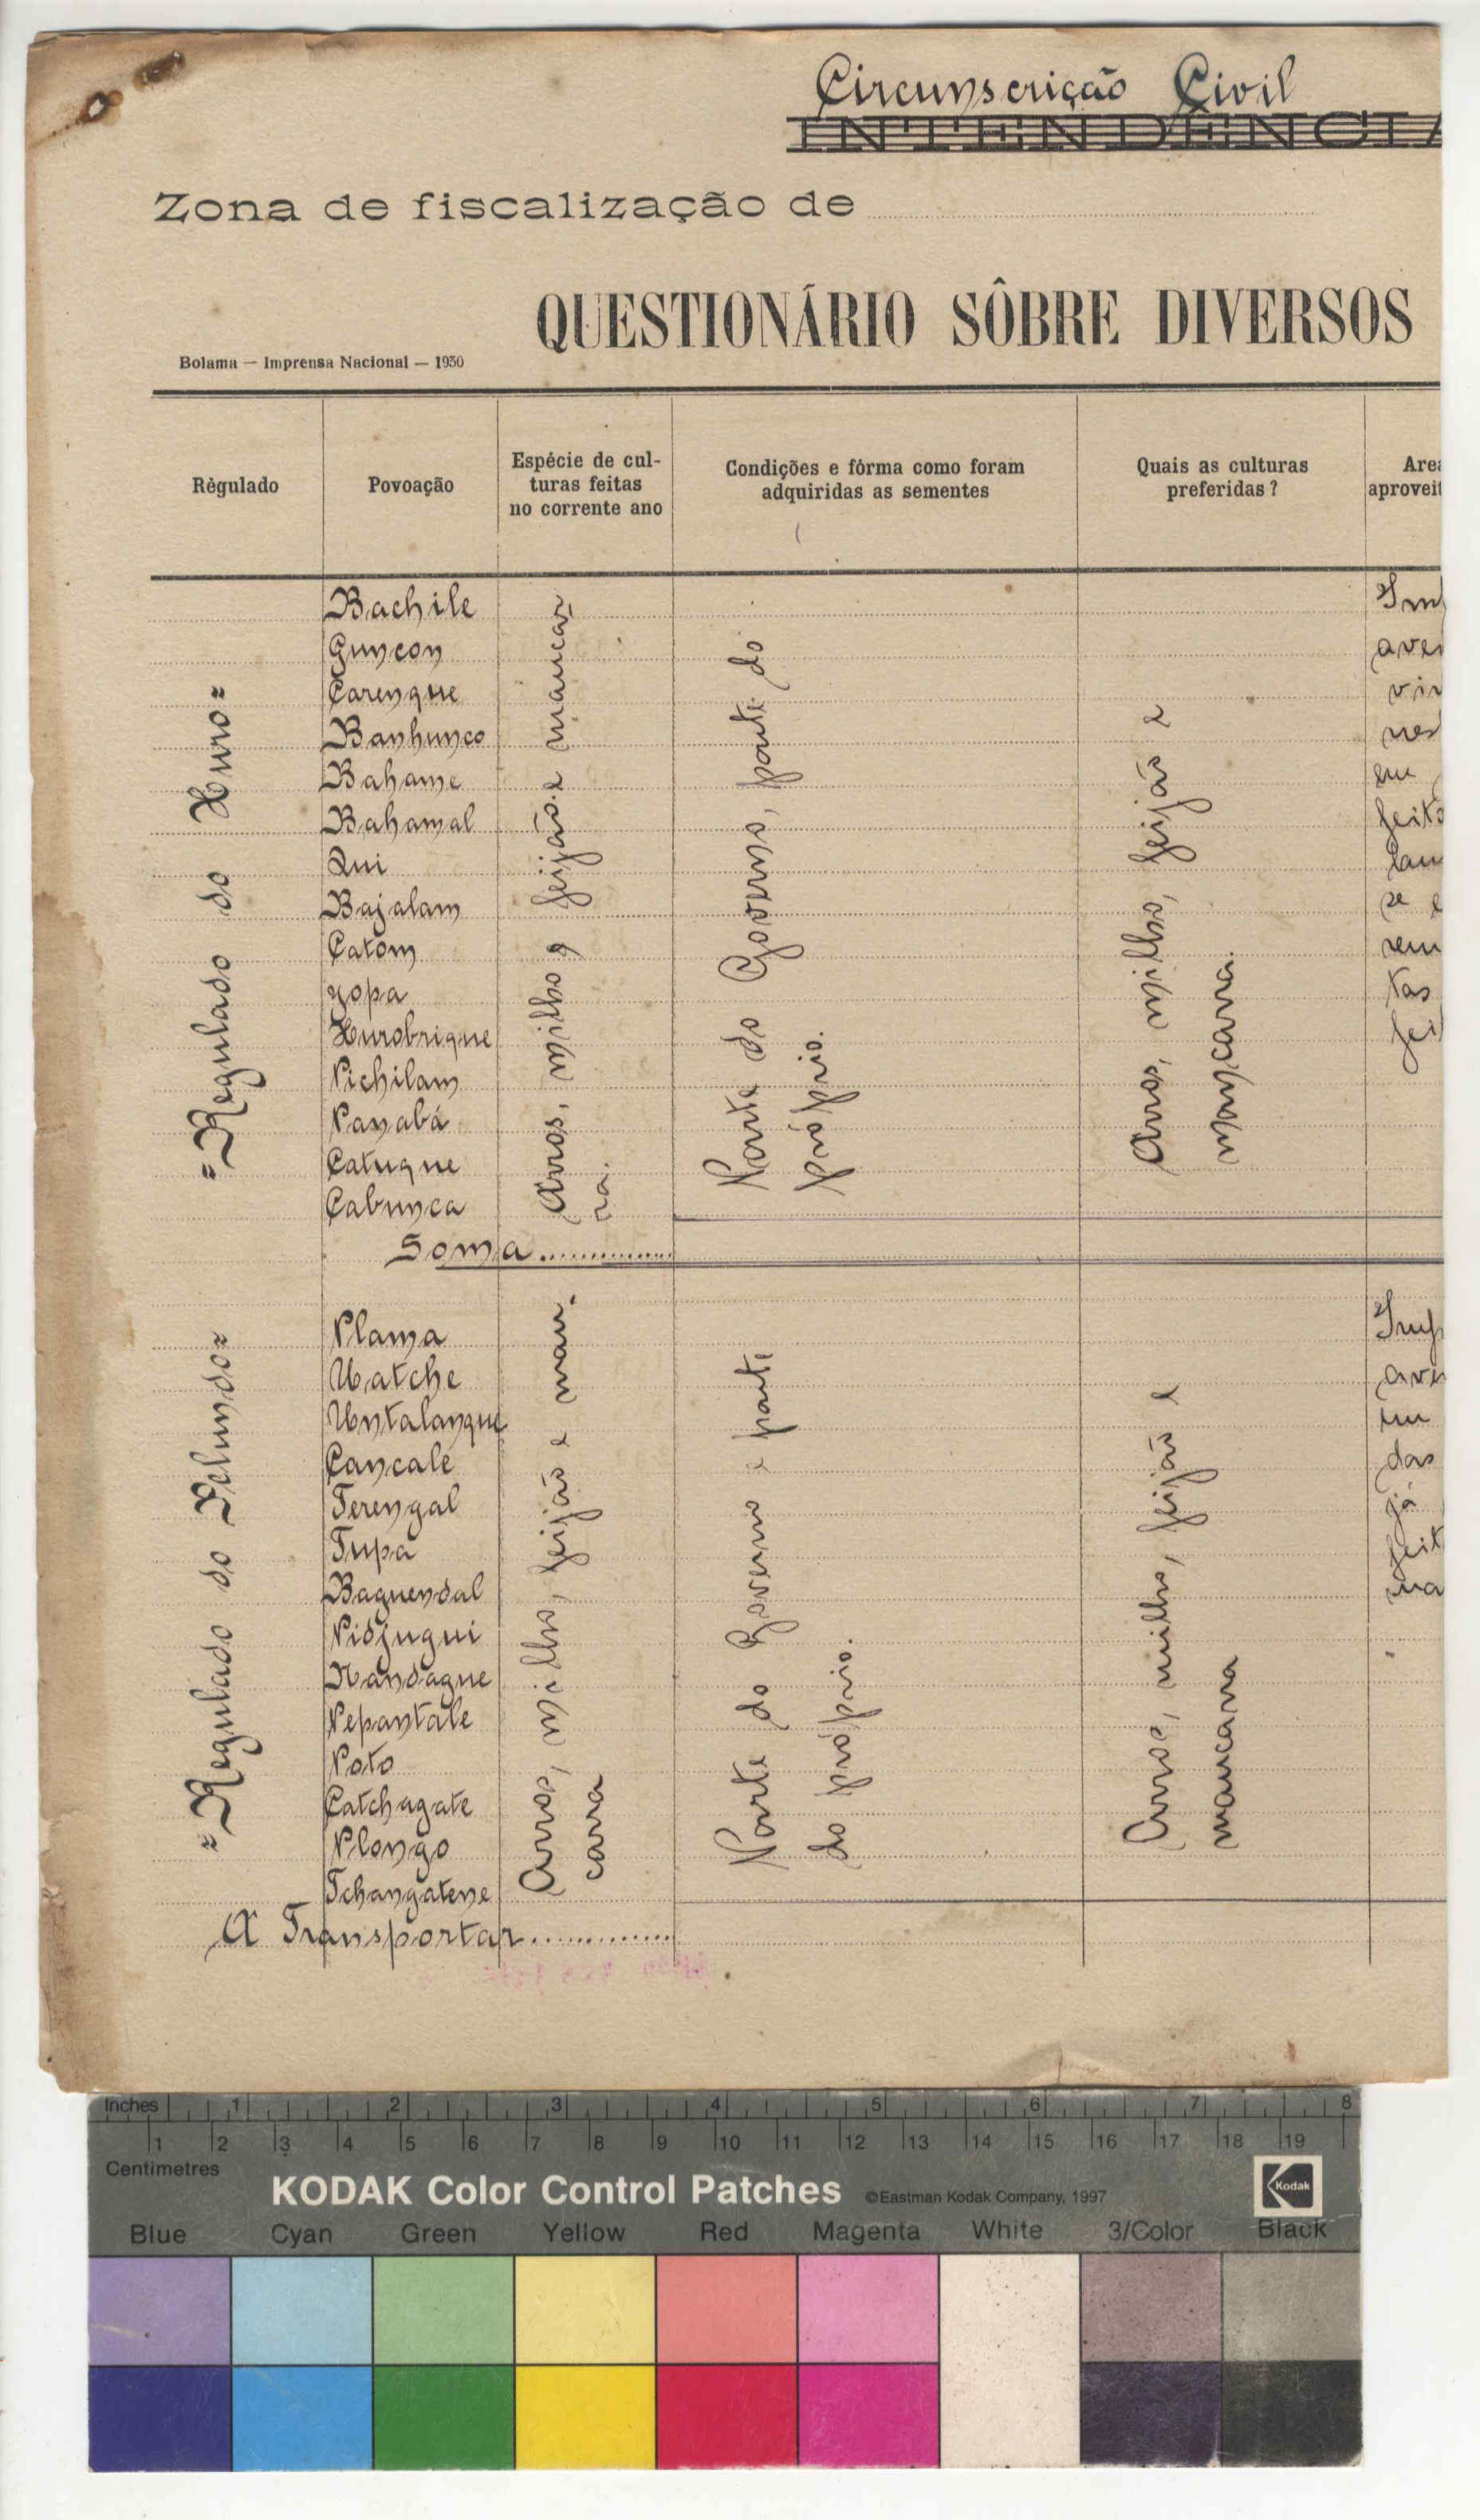 Circunscrição Civil
INTENDENCIA
Zona de fiscalização de
QUESTIONÁRIO SÔBRE DIVERSOS
Bolama — Imprensa Nacional — 1930
Règulado
Povoação
Espécie de cul-
turas feitas
no corrente ano
Condições e fórma como foram
adquiridas as sementes
Quais as culturas
preferidas?
Area
aproveit
=Regulado do Churo=
Bachile
Guncon
Carenque
Banhunco
Bahame
Bahamal
Qui
Bajalam
Catom
yopa
Churobrique
Pichilam
Panabá
Catuque
Cabunca
Arros, milho, feijão e mancar-
ra.
Parte do Governo, parte do
próprio.
Arros, milho, feijão e
mancarra.
aver
vir
em
feito
lan
se e
sem
tas
fei
Soma
=Regulado do Pelundo=
Plama
Uatche
Untalanque
Cancale
Terengal
Tupa
Baguendal
Pidjugui
Nandague
Pepantale
Poto
Catchagate
Plongo
Tchangatene
Arros, milho, feijão e man-
carra
Parte do Governo e parte
do próprio.
Arros, milho, feijão e
mancarra
aver
em
das
já
feit
na
A Transportar
Inches 1 2 3 4 5 6 7 8
1 2 3 4 5 6 7 8 9 10 11 12 13 14 15 16 17 18 19
Centimetres
KODAK Color Control Patches ©Eastman Kodak Company, 1997 Kodak
Blue Cyan Green Yellow Red Magenta White 3/Color Black